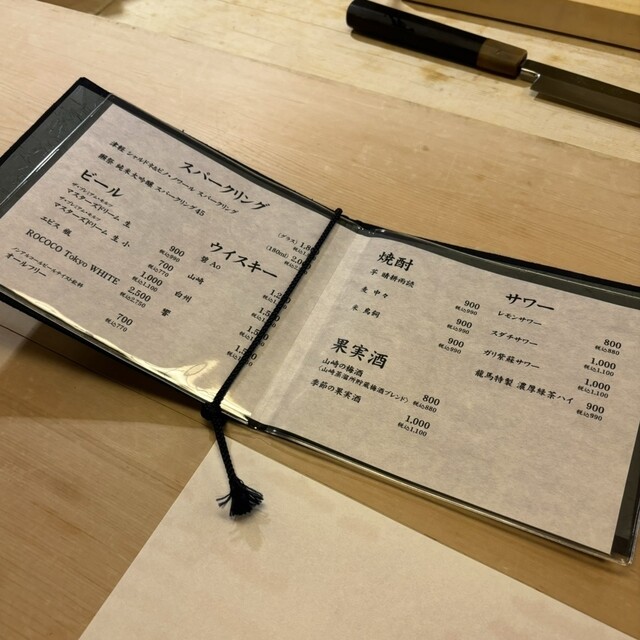 スパークリング
津軽 シャルドネ&ピノ・ノワール スパークリング
(グラス) 1,8
獺祭 純米大吟醸 スパークリング45
(180ml) 2,0
ビール
ザ・プレミアム・モルツ
マスターズドリーム 生
900
税込990
ザ・プレミアム・モルツ
マスターズドリーム 生 小
700
税込770
エビス 瓶
1,000
税込1,100
ROCOCO Tokyo WHITE
2,500
税込2,750
ノンアルコールビールテイスト飲料
オールフリー
700
税込770
ウイスキー
碧Ao
山崎
白州
響
焼酎
芋 晴耕雨読
900
税込990
麦 中々
900
税込990
米 鳥飼
900
税込990
果実酒
山崎の梅酒
(山崎蒸溜所貯蔵梅酒ブレンド)
800
税込880
季節の果実酒
1,000
税込1,100
サワー
レモンサワー
800
税込880
スダチサワー
1,000
税込1,100
ガリ紫蘇サワー
1,000
税込1,100
龍馬特製 濃厚緑茶ハイ
900
税込990